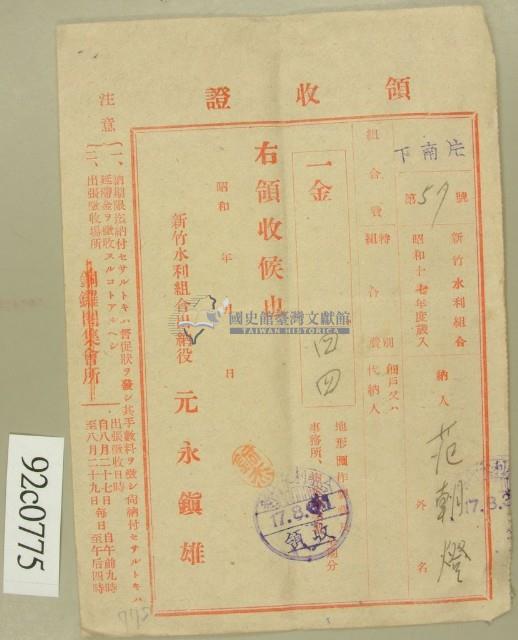 領收證
下南片
第59號
新竹水利組合
昭和十七年度歲入
納人 范朝燈 外 名
組合費
特別
組合費
代納人
一金
四四
地形圖作
事務所
右領收候也
昭和 年 月 日
新竹水利組合出納役 元永鎭雄
17.8.
領收
17.8.3
注意
一、納期限迄納付セサルトキハ督促狀ヲ發シ其手數料ヲ徵シ尚納付セサルトキハ
延滯金ヲ徵收スルコトアルヘシ
二、出張徵收場所
銅鑼圈集會所
出張徵收日時
自八月二十七日 自午前九時
至八月二十九日 每日至午后四時
國史館臺灣文獻館
TAIWAN HISTORICA
92c0775
775